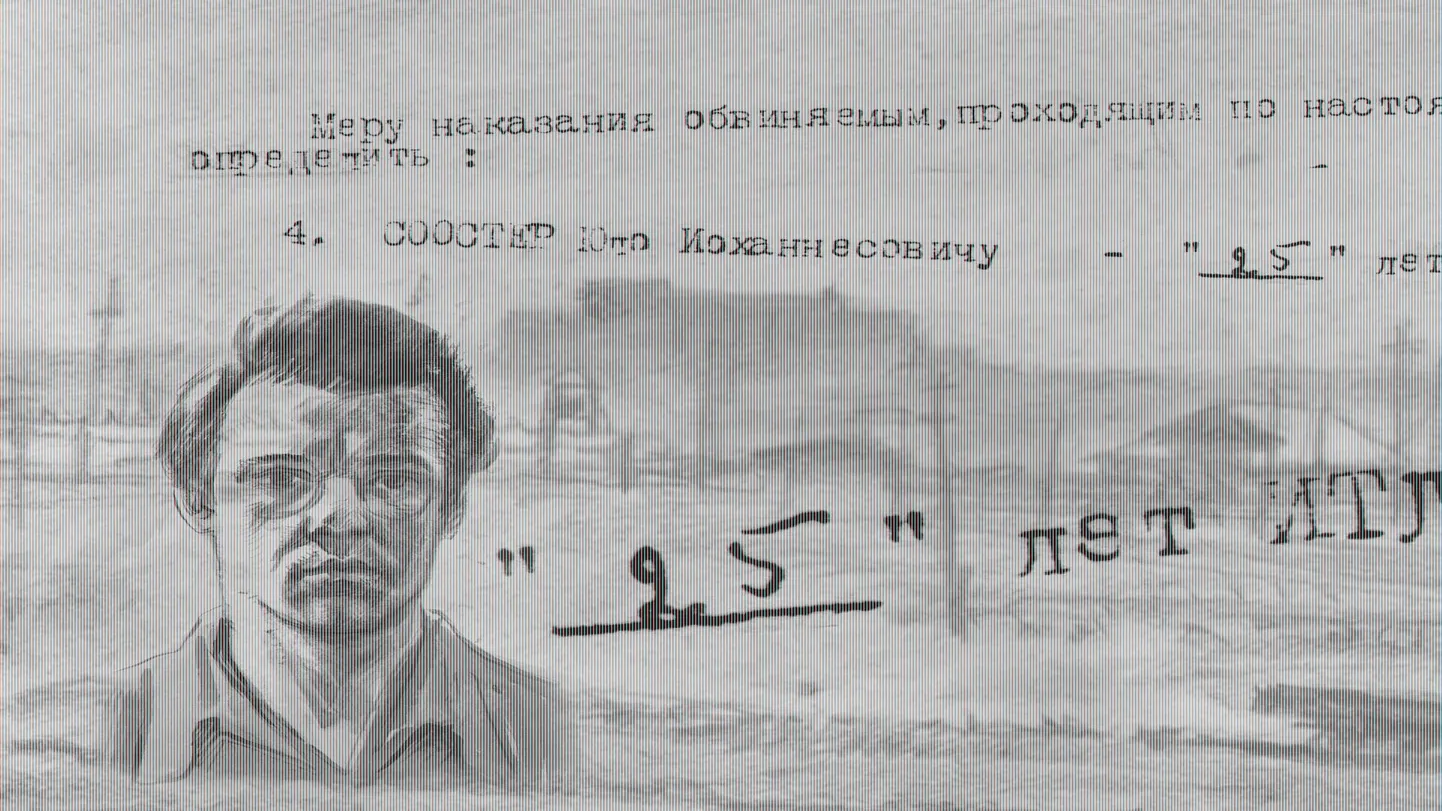 Меру наказания обвиняемым, проходящим по настоя
определить :
4. СООСТЕР Юло Иоханнесовичу - "25" лет
"25" лет ИТЛ